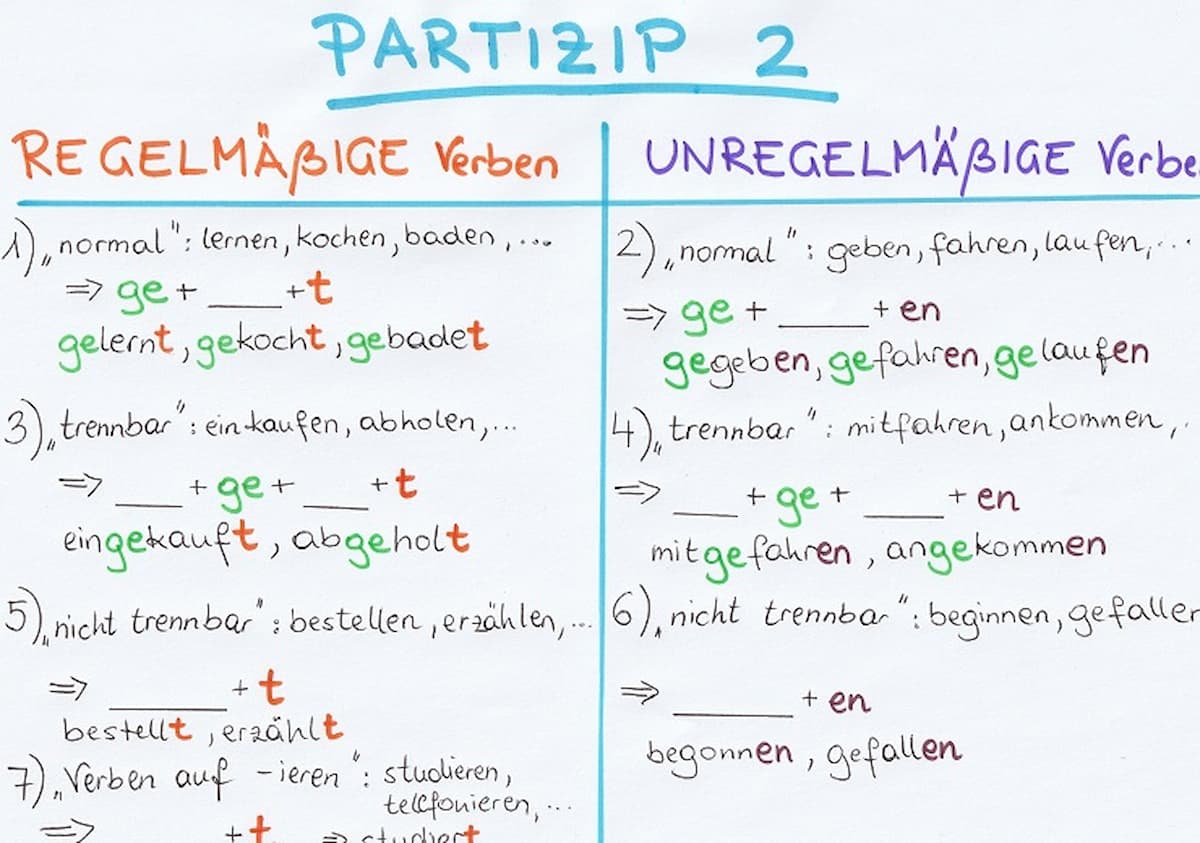 PARTIZIP 2
REGELMÄßIGE Verben
1) „normal": lernen, kochen, baden, ...
⇒ ge + ____ + t
gelernt, gekocht, gebadet
3) „trennbar": einkaufen, abholen, ...
⇒ ___ + ge + ___ + t
eingekauft, abgeholt
5) „nicht trennbar": bestellen, erzählen, ...
⇒ ______ + t
bestellt, erzählt
7) „Verben auf -ieren": studieren,
telefonieren, ...
⇒ + t ⇒ studiert
UNREGELMÄßIGE Verbe
2) „normal": geben, fahren, laufen, ...
⇒ ge + ____ + en
gegeben, gefahren, gelaufen
4) „trennbar": mitfahren, ankommen, .
⇒ ___ + ge + ____ + en
mitgefahren, angekommen
6) „nicht trennbar": beginnen, gefallen
⇒ ______ + en
begonnen, gefallen